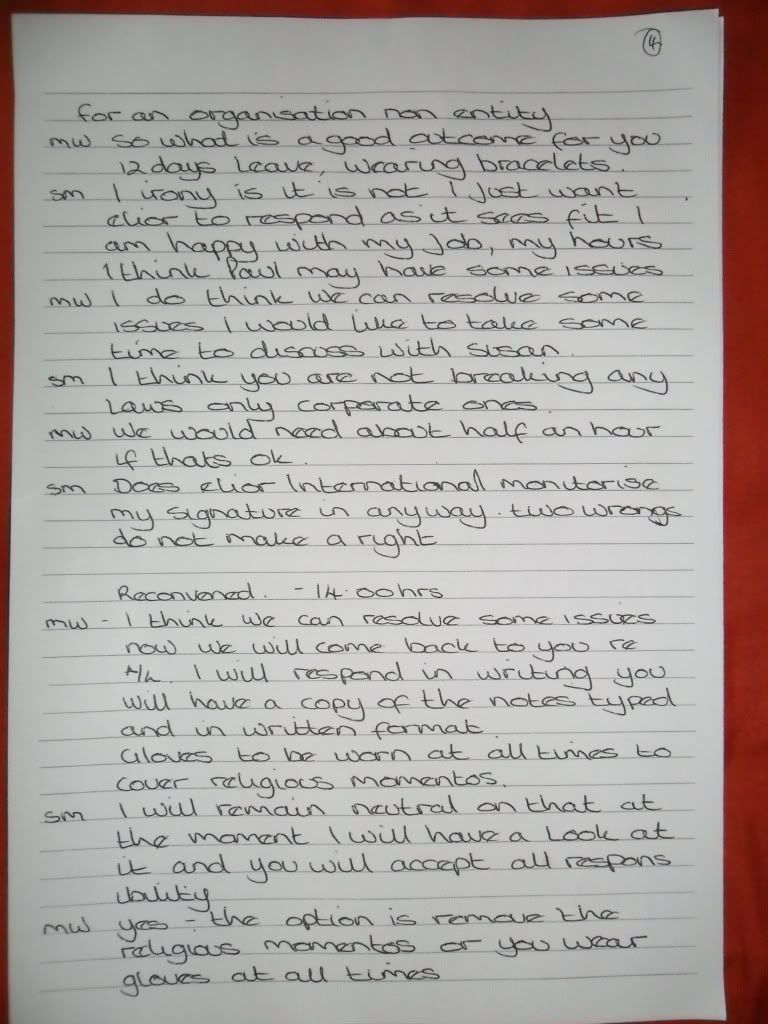 4
for an organisation non entity
mw so what is a good outcome for you
12 days leave, wearing bracelets.
sm I irony is it is not I just want
elior to respond as it sees fit I
am happy with my job, my hours
I think Paul may have some issues
mw I do think we can resolve some
issues I would like to take some
time to discuss with Susan.
sm I think you are not breaking any
laws only corporate ones.
mw we would need about half an hour
if thats ok.
sm Does elior International monitorise
my signature in anyway. two wrongs
do not make a right
Reconvened. - 14.00hrs
mw - I think we can resolve some issues
now we will come back to you re
A/L. I will respond in writing you
will have a copy of the notes typed
and in written format.
Gloves to be worn at all times to
cover religious momentos.
sm I will remain neutral on that at
the moment I will have a look at
it and you will accept all respons
ibility
mw yes - the option is remove the
religious momentos or you wear
gloves at all times